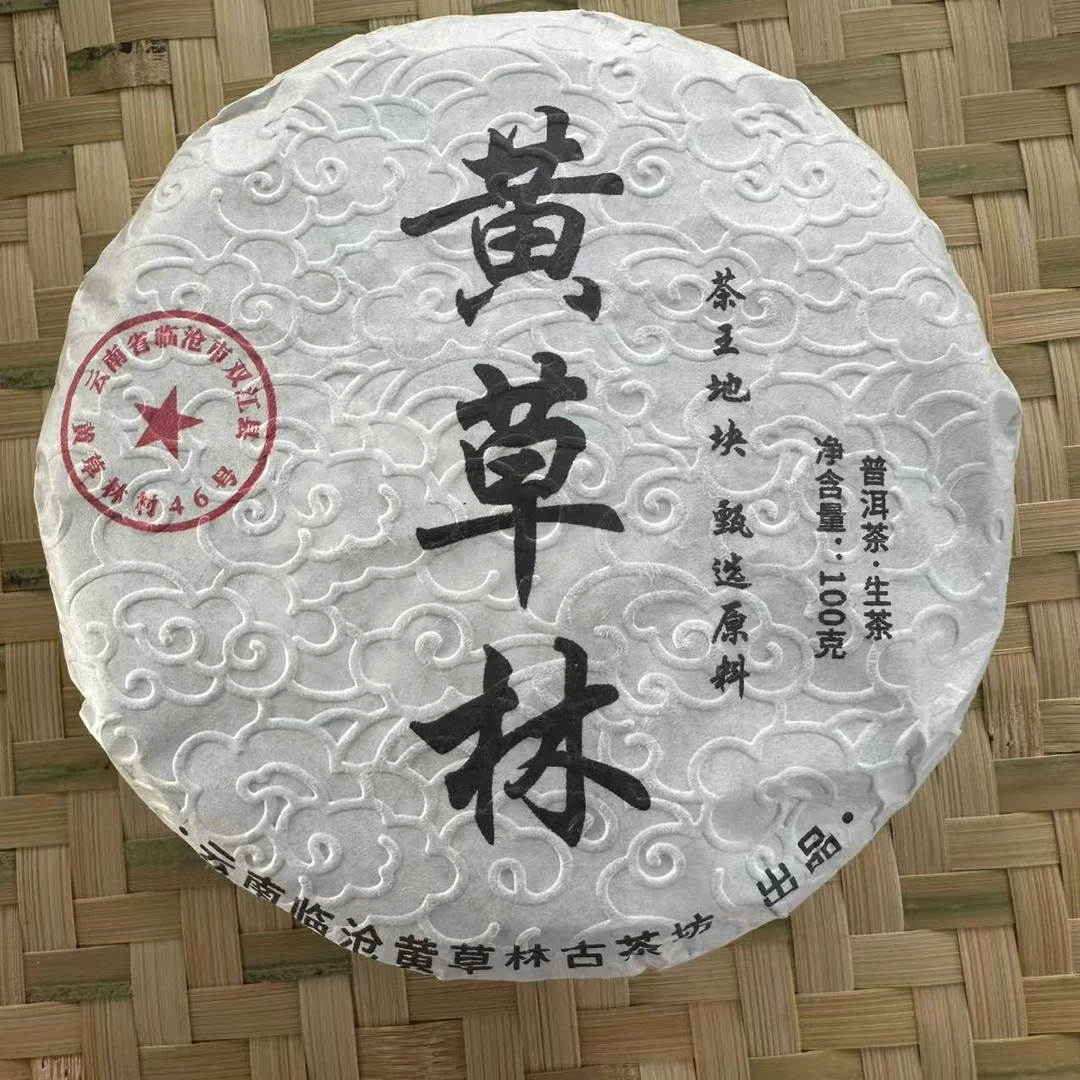 黄草林
茶王地块 甄选原料
普洱茶·生茶
净含量:100克
云南省临沧市双江县
黄草林村46号
·云南临沧黄草林古茶坊 出品·